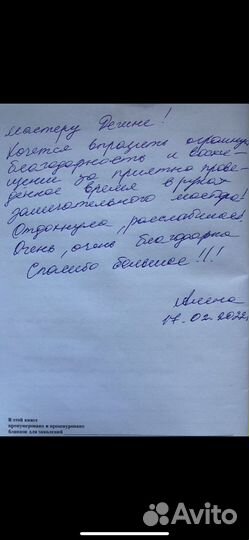 мастеру Регине!
Хочется выразить огромную
благодарность и восхи-
щение за приятно прове-
дённое время в руках
замечательного мастера!
Отдохнула, расслабилась!
Очень, очень благодарна
Спасибо большое!!!
Алёна
17.02.2022г
В этой книге
пронумеровано и прошнуровано
бланков для заявлений
Avito